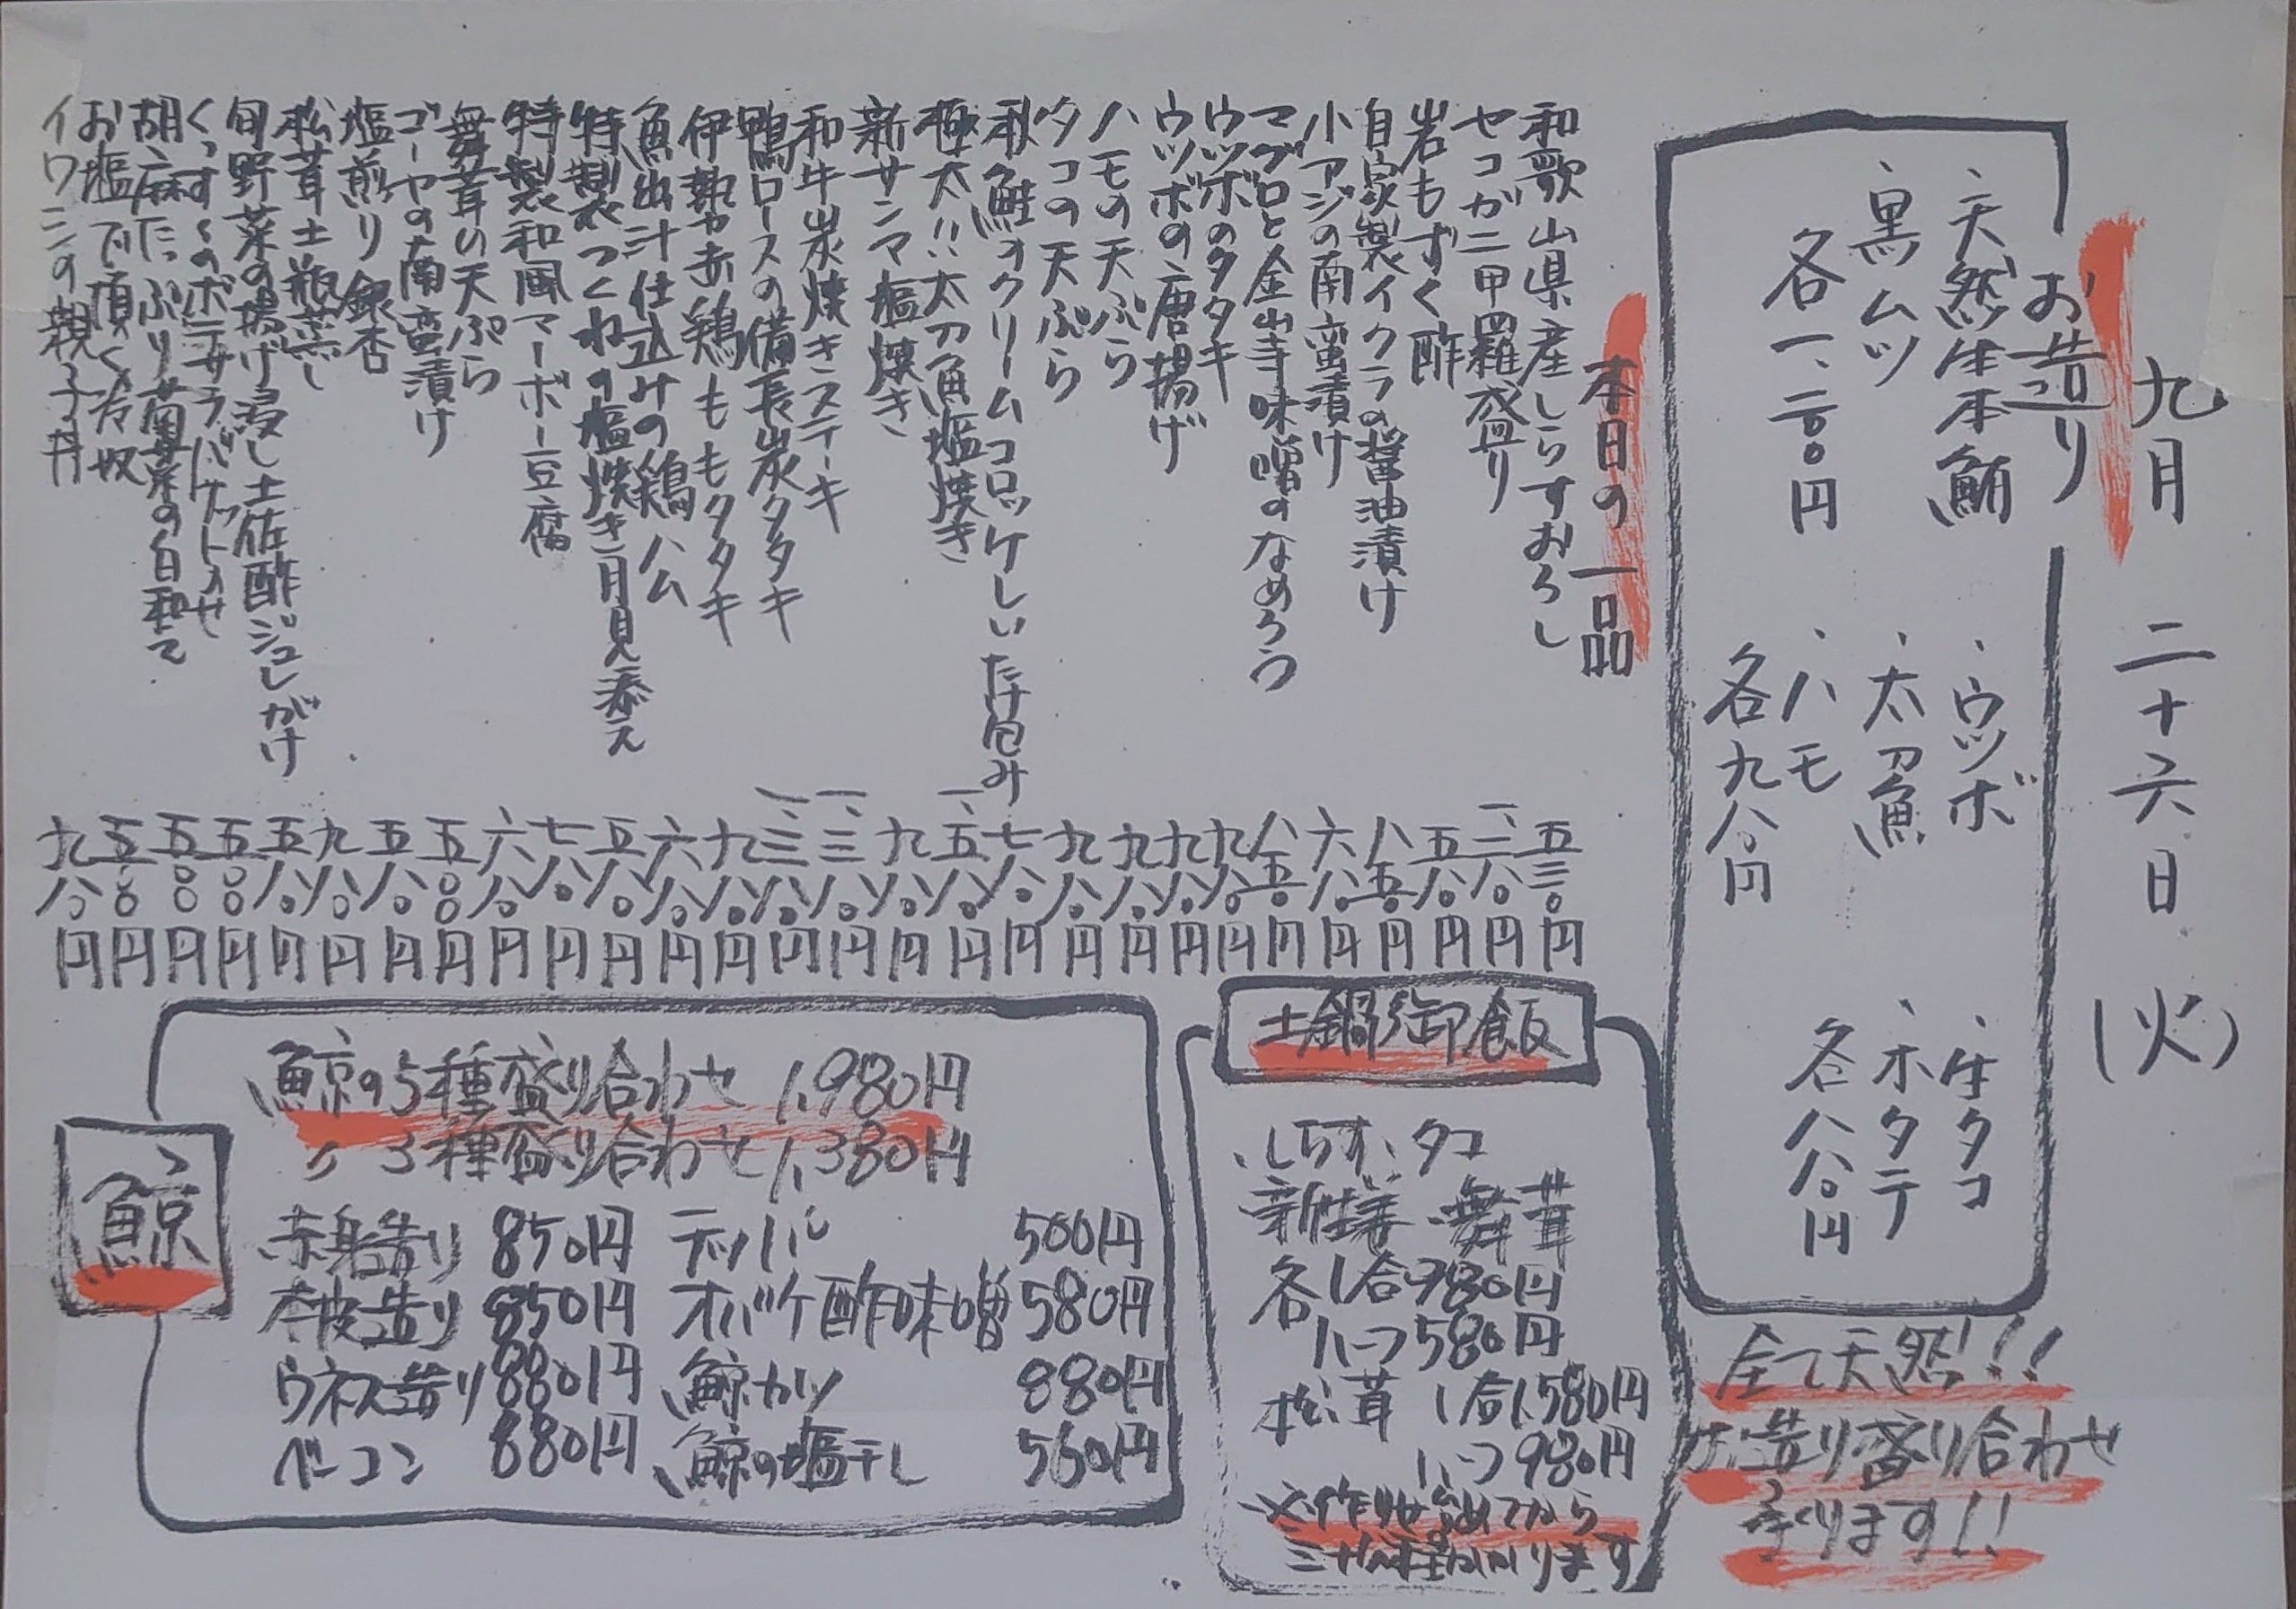 九月 二十六日 (火)
お造り
、天然生本鮪
、黒ムツ
各一、二八〇円
、ウツボ
、太刀魚
、ハモ
各九八〇円
、生タコ
、ホタテ
各八八〇円
全て天然!!
お造り盛り合わせ
承ります!!
本日の一品
和歌山県産しらすおろし 五三〇円
セコガニ甲羅盛り 一、二八〇円
岩もずく酢 五八〇円
自家製イクラの醤油漬け 八五〇円
小アジの南蛮漬け 六八〇円
マグロと金山寺味噌のなめろう 八五〇円
ウツボのタタキ 九八〇円
ウツボの唐揚げ 九八〇円
ハモの天ぷら 九八〇円
タコの天ぷら 九八〇円
秋鮭のクリームコロッケしいたけ包み 七八〇円
極太!!太刀魚塩焼き 一、五八〇円
新サンマ塩焼き 九八〇円
和牛炭焼きステーキ 一、三八〇円
鴨ロースの備長炭タタキ 一、三八〇円
伊勢赤鶏ももタタキ 九八〇円
魚出汁仕込みの鶏ハム 六八〇円
特製つくねの塩焼き月見添え 五八〇円
特製和風マーボー豆腐 七八〇円
舞茸の天ぷら 六八〇円
ゴーヤの南蛮漬け 五〇〇円
塩煎り銀杏 五八〇円
松茸土瓶蒸し 九八〇円
旬野菜の揚げ浸し土佐酢ジュレがけ 五八〇円
くっすぐのポテサラバケット乗せ 五〇〇円
胡麻たっぷり菊菜の白和え 五〇〇円
お塩で頂く冷奴 五〇〇円
イワシの親子丼 九八〇円
土鍋御飯
、しらす、タコ
新生姜、舞茸
各1合980円
ハーフ580円
松茸 1合1,580円
ハーフ980円
※作り始めてから
三十分程かかります
鯨
鯨の5種盛り合わせ 1,980円
〃 3種盛り合わせ 1,380円
赤身造り 850円 テッパ 500円
本皮造り 850円 オバケ酢味噌 580円
ウネス造り 880円 鯨カツ 880円
ベーコン 880円 鯨の塩干し 560円